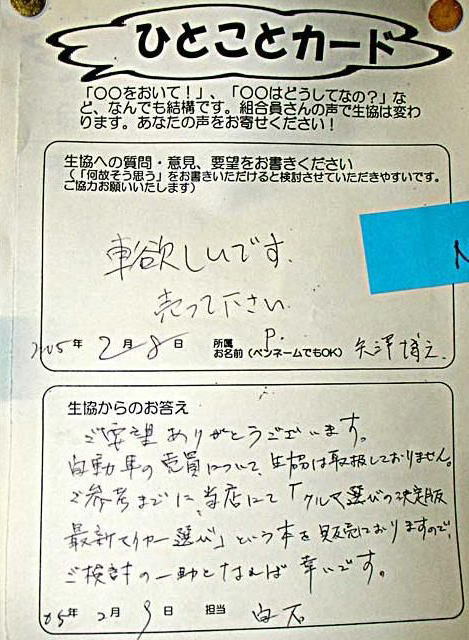 ひとことカード
「○○をおいて！」、「○○はどうしてなの？」な
ど、なんでも結構です。組合員さんの声で生協は変わ
ります。あなたの声をお寄せください！
生協への質問・意見、要望をお書きください
（「何故そう思う」をお書きいただけると検討させていただきやすいです。
ご協力お願いいたします）
車欲しいです。
売って下さい
2005年 2月 8日 所属 P.
お名前（ペンネームでもOK）
生協からのお答え
ご要望ありがとうございます。
自動車の売買について、生協は取扱しておりません。
ご参考までに、当店にて「クルマ選びの決定版
最新マイカー選び」という本を販売しておりますので、
ご検討の一助となれば幸いです。
05年 2月 9日 担当 白石